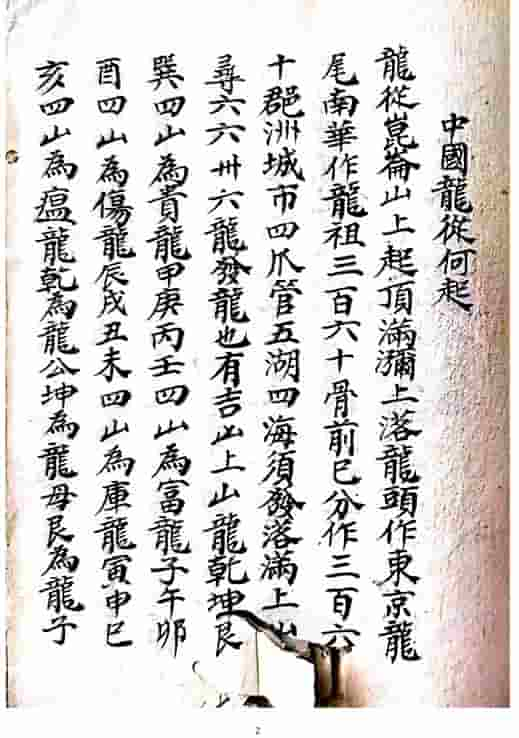 中國龍從何起
龍從崑崙山上起頂滿瀰上落龍頭作東京龍
尾南華作龍祖三百六十骨前已分作三百六
十郡洲城市四爪管五湖四海須發落滿上山
尋六六卅六龍發龍也有吉凶上山龍乾坤艮
巽四山為貴龍甲庚丙壬四山為富龍子午卯
酉四山為傷龍辰戌丑未四山為庫龍寅申巳
亥四山為瘟龍乾為龍公坤為龍母艮為龍子
2